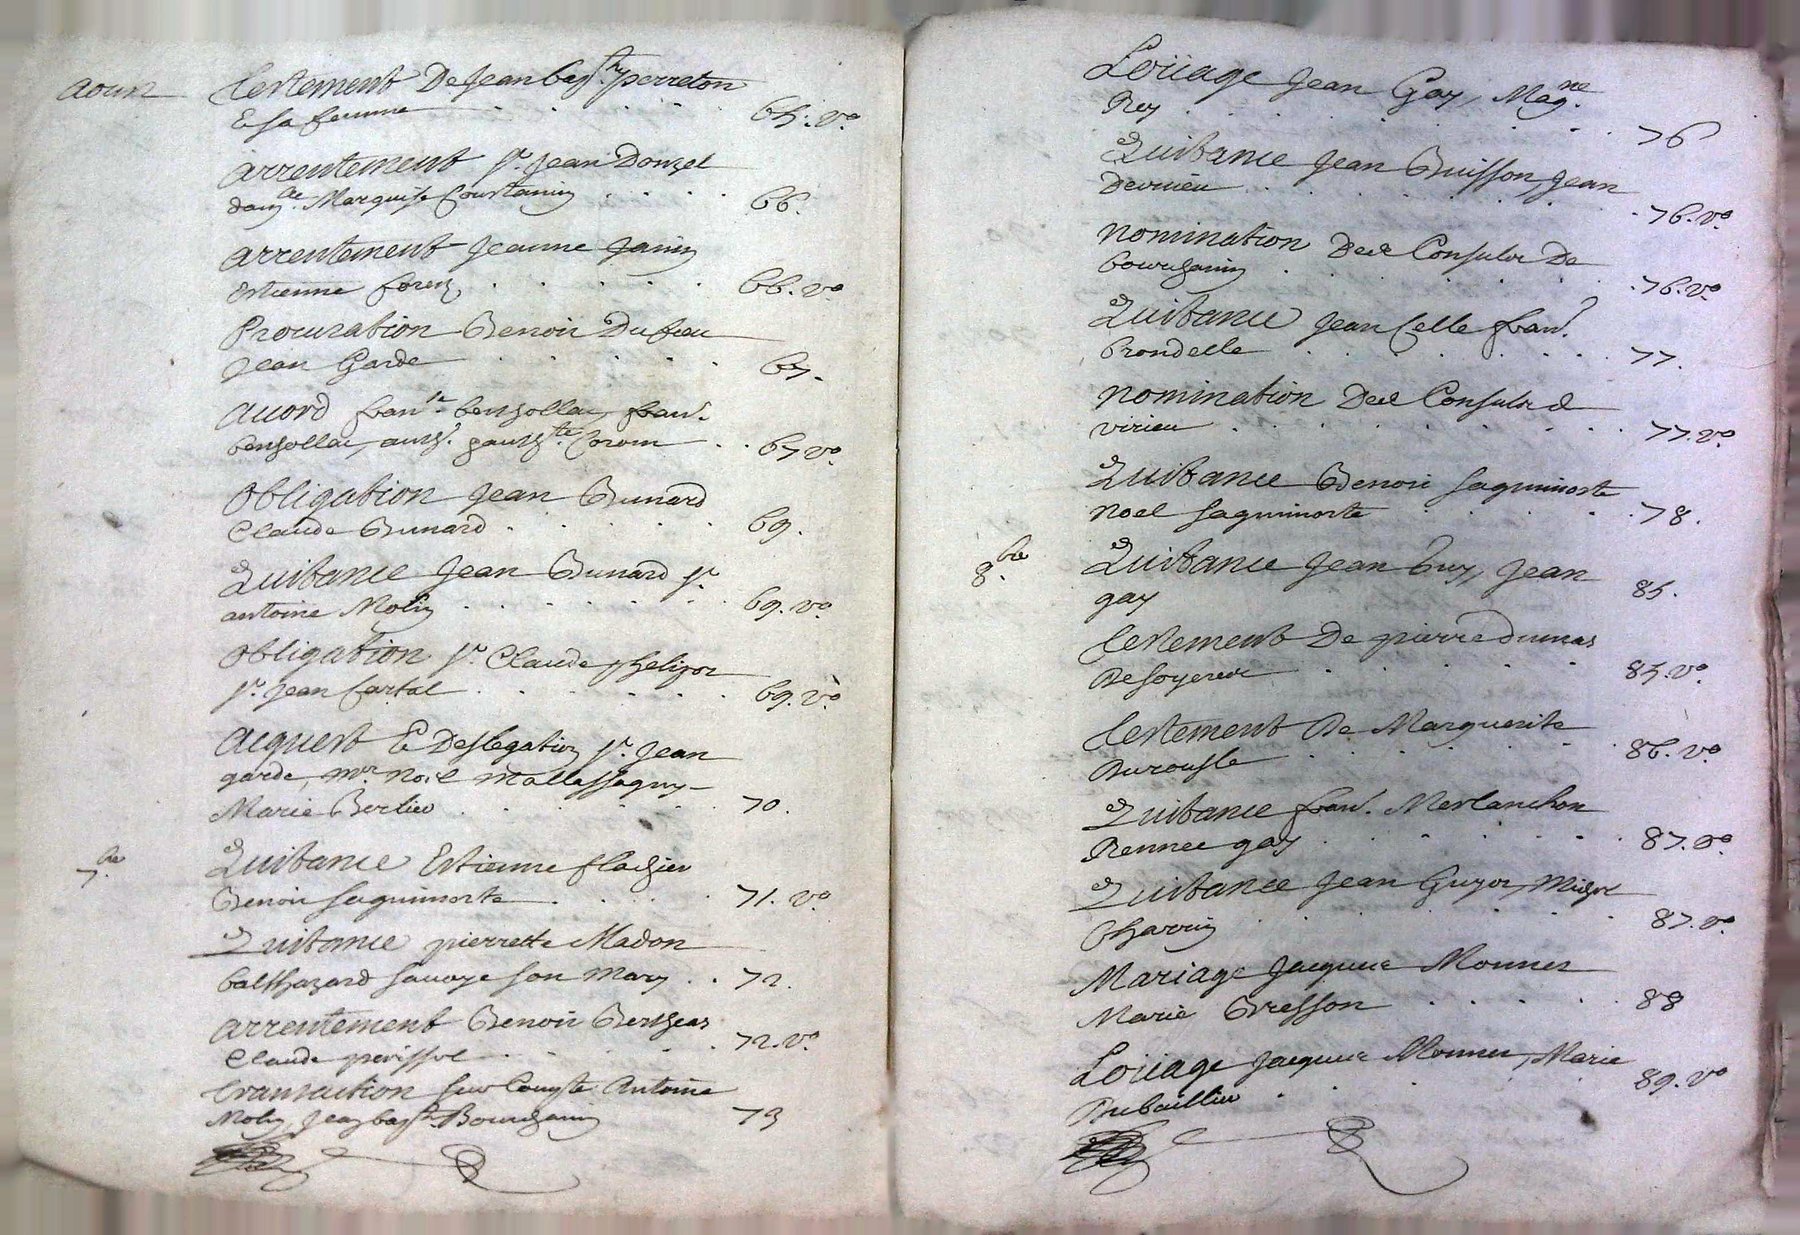 aoust Testement De Jean bapt perreton
E sa femme 65. vo.
arrentement Sr. Jean Donzel
damlle. Marquise Coustanin 66.
arrentement Jeanne Janin
Estienne forest 66. vo
Procuration Benoit Dufeu
Jean Garde 67.
Acord fran
67 vo.
Obligation Jean Bunard
Claude Bunard 69.
Quitance Jean Bunard Sr
antoine Molin 69. vo
Obligation Sr. Claude phelipot
Sr. Jean Cartal 69. vo
Acquest E Deslegation Sr. Jean
garde, Mr. Noël Mallassagny
Marie Berlier 70.
7.bre Quitance Estienne flachier
Benoit saquimorte 71. vo
Quitance pierrette Madon
balthazard sauoye son Mary 72.
arrentement Benoit Bertheas
Claude perissol 72. vo
transaction sur Compte Antoine
Molin, Jean bapt. Bourchanin 73
Loüage Jean Gay, Magne
Rey 76
Quitance Jean Buisson, Jean
Devrieu 76. vo
Nomination Des Consuls De
bourchanin 76. vo
Quitance Jean Celle fran.
Brondelle 77.
Nomination Des Consuls d
virieu 77. vo
Quitance Benoit saquimorte
Noel saquimorte 78.
8.bre Quitance Jean Guy, Jean
gay 85.
Testement De pierre dumas
85. vo
Testement De Marguerite
Durousle 86. vo
Quitance fran. Merlanchon
Rennee gay 87. vo
Quitance Jean Guyot, Michel
Charrin 87. vo
Mariage Jacques Monnet
Marie Bresson 88
Loüage Jacques Monnet, Marie
Dubaillier 89. vo